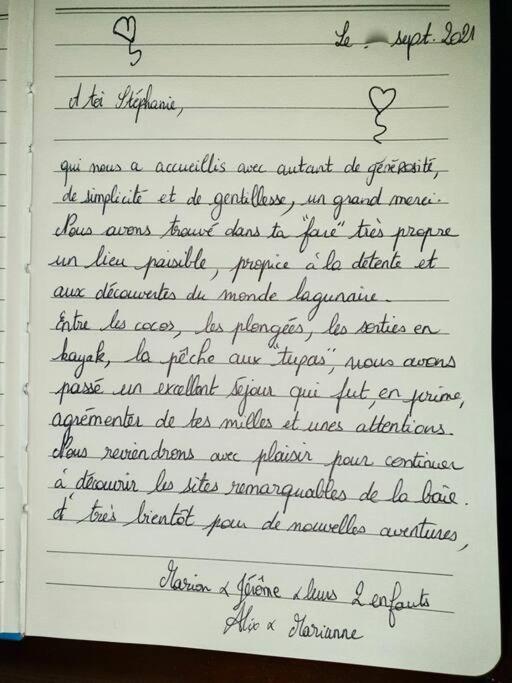 Le sept. 2021
A toi Stéphanie,
qui nous a accueillis avec autant de générosité,
de simplicité et de gentillesse, un grand merci.
Nous avons trouvé dans ta "fare" très propre
un lieu paisible, propice à la détente et
aux découvertes du monde lagunaire.
Entre les cocos, les plongées, les sorties en
kayak, la pêche aux "tupas", nous avons
passé un excellent séjour qui fut, en prime,
agrémenter de tes milles et unes attentions.
Nous reviendrons avec plaisir pour continuer
à découvrir les sites remarquables de la baie.
A très bientôt pour de nouvelles aventures,
Marion & Jérôme & leurs 2 enfants
Alix & Marianne